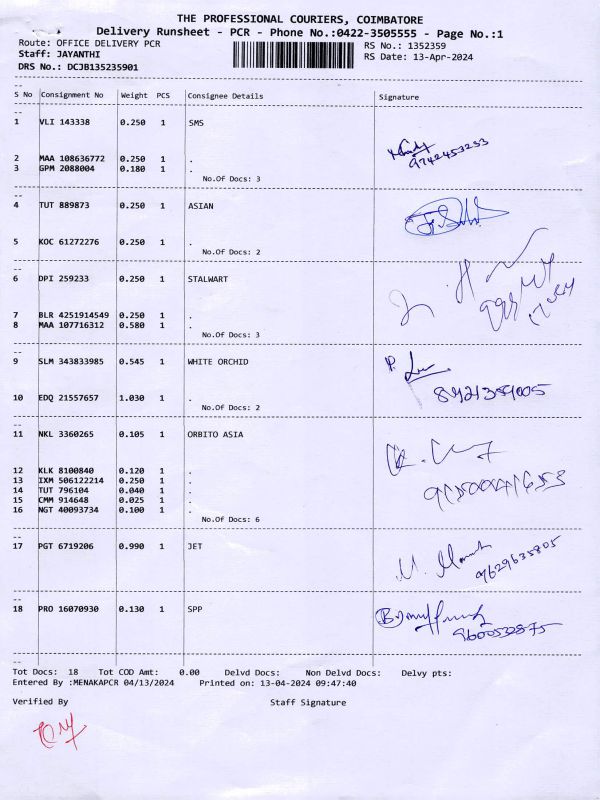 THE PROFESSIONAL COURIERS, COIMBATORE
Delivery Runsheet - PCR - Phone No.:0422-3505555 - Page No.:1
Route: OFFICE DELIVERY PCR RS No.: 1352359
Staff: JAYANTHI RS Date: 13-Apr-2024
DRS No.: DCJB135235901
S No Consignment No Weight PCS Consignee Details Signature
1 VLI 143338 0.250 1 SMS
9742453233
2 MAA 108636772 0.250 1 .
3 GPM 2088004 0.180 1 .
No.Of Docs: 3
4 TUT 889873 0.250 1 ASIAN
5 KOC 61272276 0.250 1 .
No.Of Docs: 2
6 DPI 259233 0.250 1 STALWART
7 BLR 4251914549 0.250 1 .
8 MAA 107716312 0.580 1 .
No.Of Docs: 3
9 SLM 343833985 0.545 1 WHITE ORCHID
10 EDQ 21557657 1.030 1 .
No.Of Docs: 2
11 NKL 3360265 0.105 1 ORBITO ASIA
12 KLK 8100840 0.120 1 .
13 IXM 506122214 0.250 1 .
14 TUT 796104 0.040 1 .
15 CMM 914648 0.025 1 .
16 NGT 40093734 0.100 1 .
No.Of Docs: 6
17 PGT 6719206 0.990 1 JET
9629635805
18 PRO 16070930 0.130 1 SPP
9600532875
Tot Docs: 18 Tot COD Amt: 0.00 Delvd Docs: Non Delvd Docs: Delvy pts:
Entered By :MENAKAPCR 04/13/2024 Printed on: 13-04-2024 09:47:40
Verified By Staff Signature